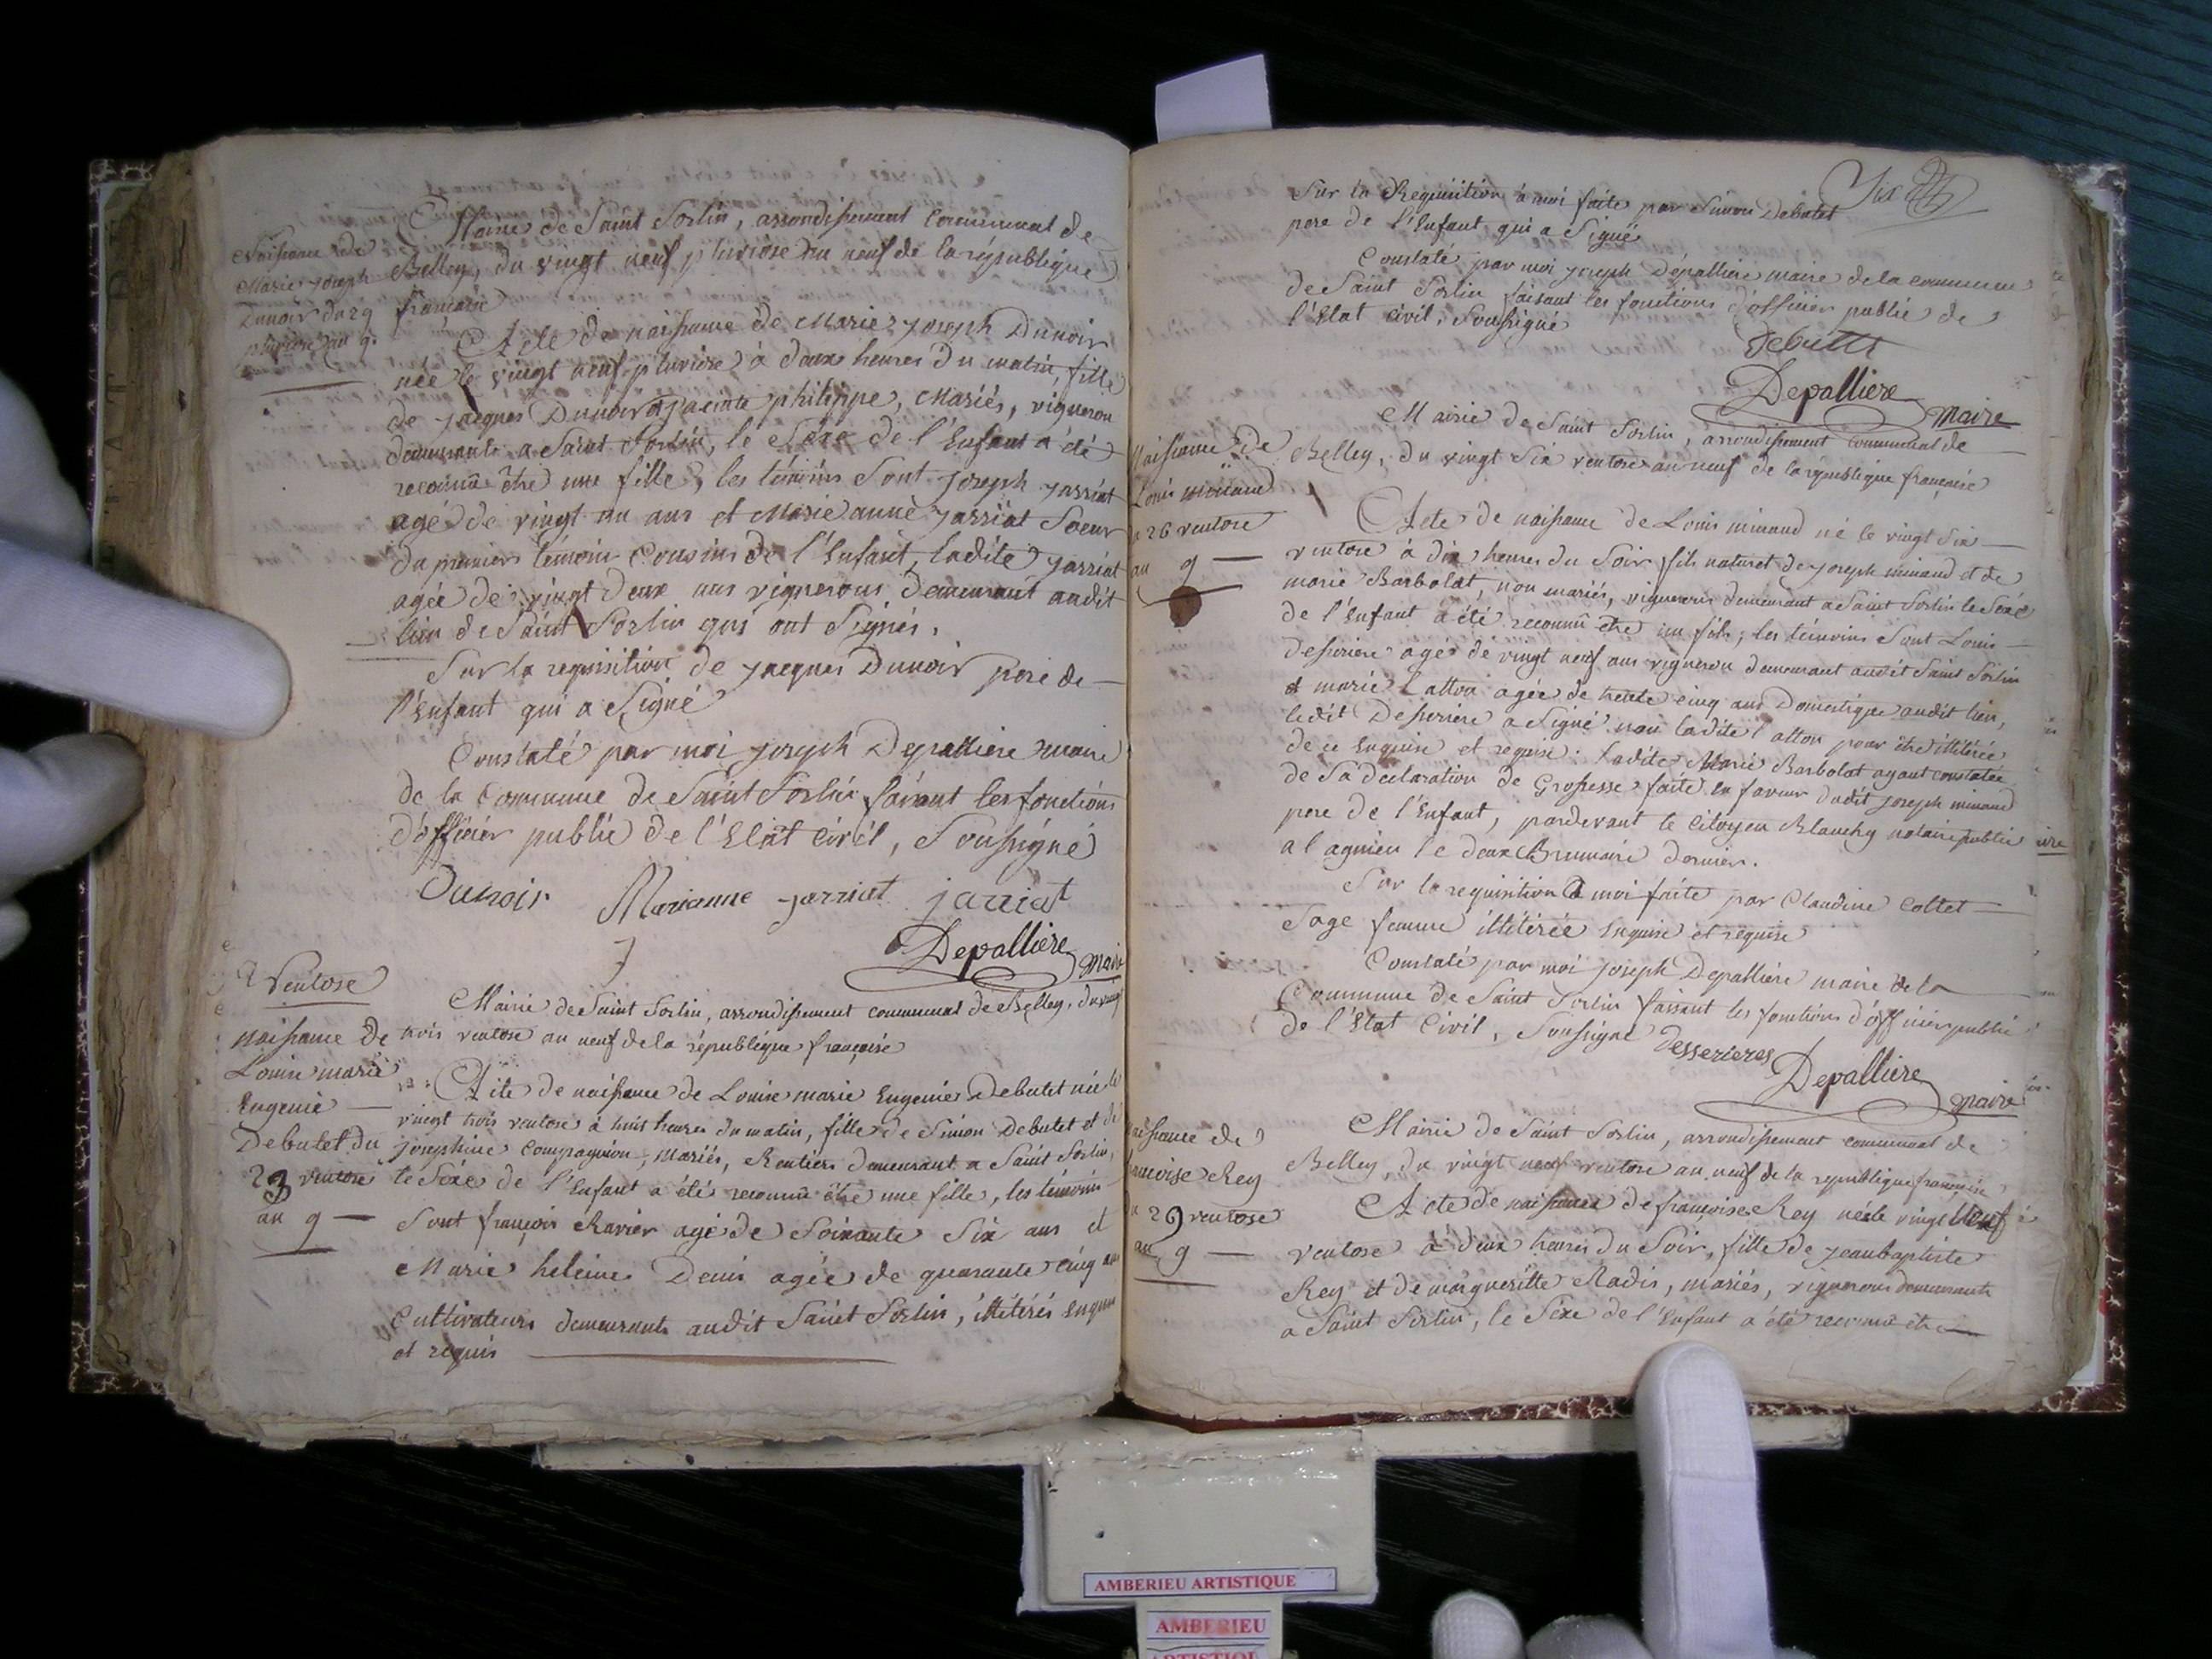 Naissance de
Marie Joseph
Dunoir du 29
pluviose an 9.
Mairie de Saint Sorlin, arrondissement communal de
Belley, du vingt neuf pluviose an neuf de la république
française
Acte de naissance de Marie Joseph Dunoir
née le vingt neuf pluviose à deux heures du matin, fille
de jacques Dunoir et jacinte philippe, Mariés, vigneron
demeurants a Saint Sorlin, le Sexe de l'Enfant a été
reconnu être une fille, les témoins Sont joseph jarriat
agé de vingt un ans et Marie anne jarriat Soeur
du premier témoin Cousins de l'Enfant, ladite jarriat
agée de vingt deux ans vignerons demeurant audit
lieu de Saint Sorlin qui ont Signés.
Sur la requisition de jacques Dunoir pere de
l'Enfant qui a Signé
Constaté par moi joseph Depalliere maire
de la Commune de Saint Sorlin faisant les fonctions
d'officier public de l'Etat Civil, Soussigné
Dunoir Marianne jarriat jarriat
Depalliere maire
Ventose
naissance de
Louise marie
Eugenie
Debutet du
23 ventose
an 9
Mairie de Saint Sorlin, arrondissement communal de Belley, du vingt
trois ventose an neuf de la république française
Acte de naissance de Louise marie Eugenie Debutet née le
vingt trois ventose à huit heures du matin, fille de Simon Debutet et de
josephine Compagnion, mariés, Rentiers demeurant a Saint Sorlin,
le Sexe de l'Enfant a été reconnu être une fille, les témoins
Sont françois Ravier agé de Soixante Six ans et
Marie heleine Denis agée de quarante cinq ans
Cultivateurs demeurants audit Saint Sorlin, illitérés enquis
et requis
Six
Sur la Requisition à moi faite par Simon Debutet
pere de l'Enfant qui a Signé
Constaté par moi joseph Dépalliere maire de la commune
de Saint Sorlin faisant les fonctions d'officier public de
l'Etat civil, Soussigné
Debutet
Depalliere
maire
Naissance de
Louis minand
26 ventose
an 9
Mairie de Saint Sorlin, arrondissement communal de
Belley, du vingt Six ventose an neuf de la république française
Acte de naissance de Louis minand né le vingt Six
ventose à dix heures du Soir fils naturel de joseph minand et de
marie Barbolat, non mariés, vignerons demeurant a Saint Sorlin le Sexe
de l'Enfant a été reconnu être un fils; les témoins Sont Louis
Desseriere agé de vingt neuf ans vigneron demeurant audit Saint Sorlin
et marie Latton agée de trente cinq ans Domestique audit lieu,
ledit Desseriere a Signé non ladite Latton pour être illitérée
de ce Enquise et requise. Ladite Marie Barbolat ayant constatée
de Sa declaration de Grossesse faite en faveur dudit joseph minand
pere de l'Enfant, pardevant le Citoyen Blanchy notaire public
a lagnieu le deux Brumaire dernier.
Sur la requisition à moi faite par Claudine Collet
Sage femme illitérée Enquise et requise
Constaté par moi joseph Depalliere maire de la
Commune de Saint Sorlin faisant les fonctions d'officier public
de l'Etat Civil, Soussigné
Desserieres Depalliere
maire
naissance de
francoise Rey
29 ventose
an 9
Mairie de Saint Sorlin, arrondissement communal de
Belley, du vingt neuf ventose an neuf de la république française
Acte de naissance de francoise Rey née le vingt Neuf
ventose à deux heures du Soir, fille de jean baptiste
Rey et de margueritte Radis, mariés, vignerons demeurants
a Saint Sorlin, le Sexe de l'Enfant a été reconnu être
AMBERIEU ARTISTIQUE
AMBERIEU
ARTISTIQUE